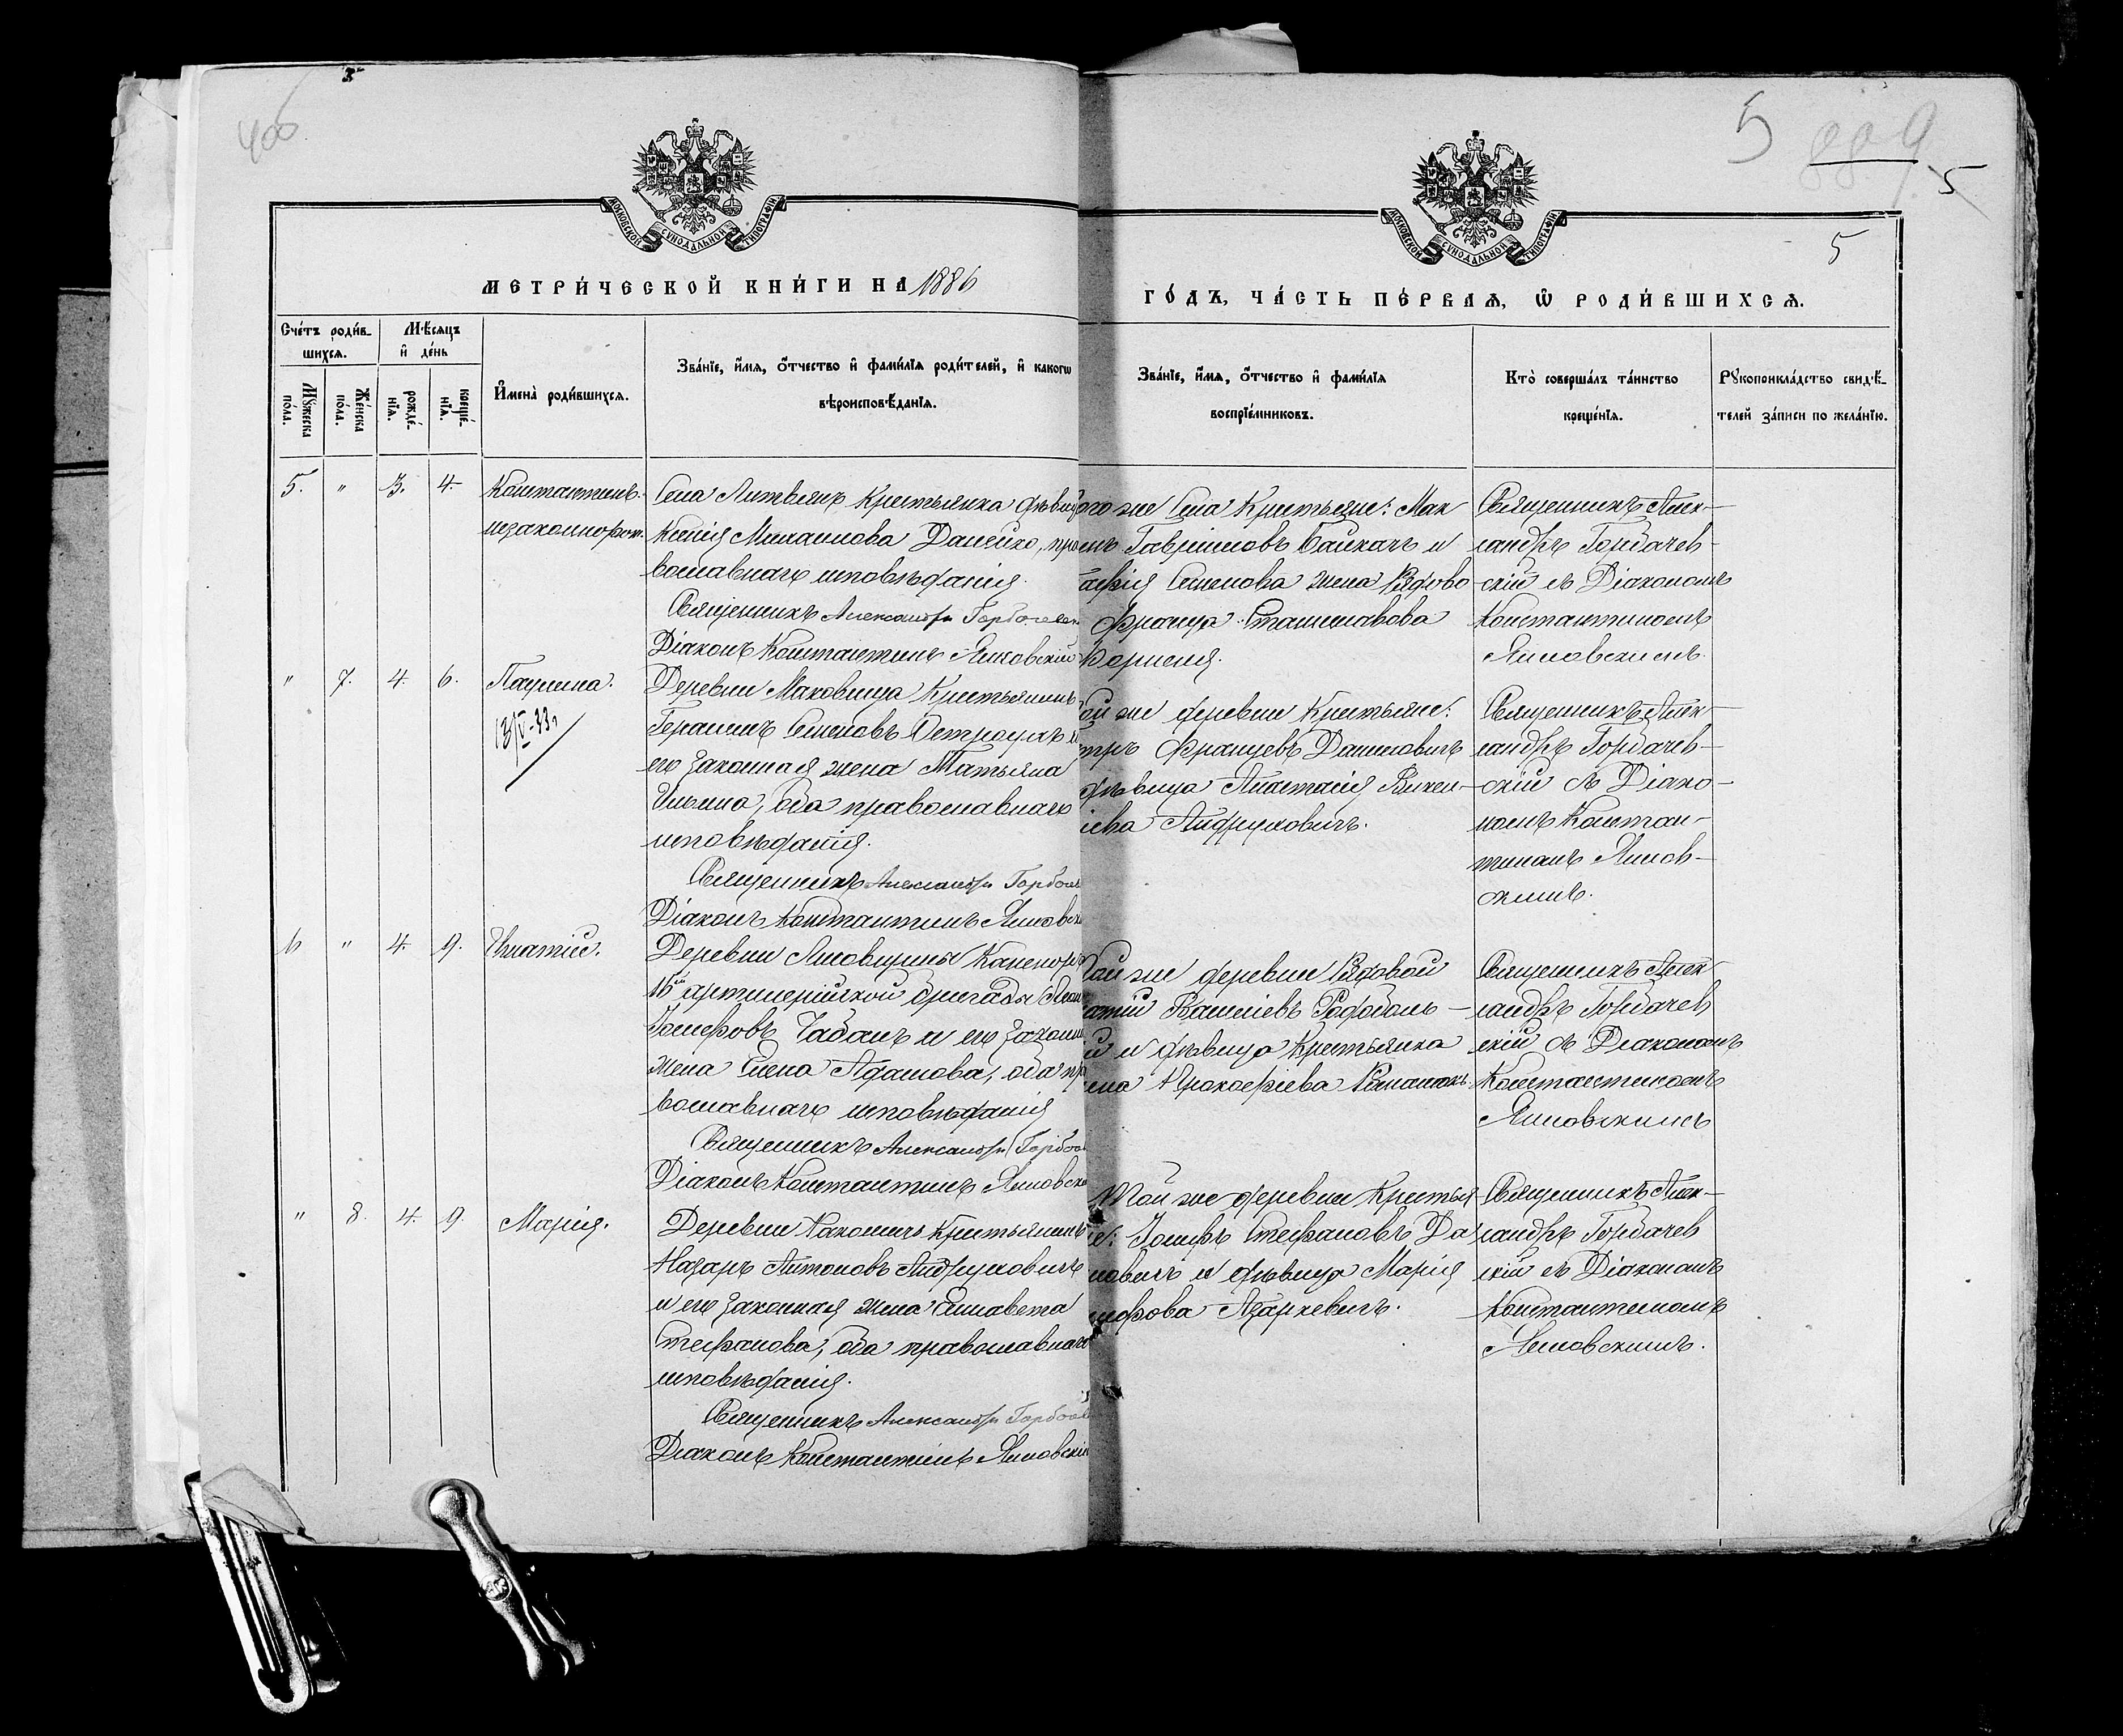 5
5
5
МОСКОВСКОЙ СѴНОДАЛЬНОЙ ТИПОГРАФІИ
МОСКОВСКОЙ СѴНОДАЛЬНОЙ ТИПОГРАФІИ
МЕТРИ́ЧЕСКОЙ КНИ́ГИ НА 1886
ГО́ДЪ, ЧА́СТЬ ПЕ́РВАѦ, Ѡ҆ РОДИ́ВШИХСѦ.
Сче́тъ роди́в-
шихсѧ.
Мѣ́сѧцъ
и҆ де́нь
Мꙋ́жеска
по́ла.
Же́нска
по́ла.
рожде́-
нїѧ.
креще́-
нїѧ.
И҆мена̀ роди́вшихсѧ.
Зва́нїе, и҆́мѧ, ѻ҆́тчество и҆ фами́лїѧ роди́телей, и҆ какогѡ
вѣроисповѣ́данїѧ.
Зва́нїе, и҆́мѧ, ѻ҆́тчество и҆ фами́лїѧ
воспрїе́мниковъ.
Кто̀ соверша́лъ та́инство
креще́нїѧ.
Рꙋкоприкла́дство свидѣ́-
телей за́писи по жела́нїю.
5. " 3. 4. Константинъ.
незаконнорож.
Села Литвянъ крестьянка дѣвица
Ксенія Михаилова Данейко, пра
вославнаго исповѣданія.
Священникъ Александръ Горбачев
Діаконъ Константинъ Яновскій
ого же Села Крестьяне: Мак
имъ Гавриловъ Байкачъ и
Семенова жена Рядово
Франца Станиславова
Священникъ Алек-
сандръ Горбачев-
скій съ Діакономъ
Константиномъ
Яновскимъ.
" 7. 4. 6. Паулина.
Деревни Маковища Крестьянинъ
Герасимъ Семеновъ Остроухъ и
его законная жена Татьяна
Ильина, оба православнаго
исповѣданія.
Священникъ Александръ Горбач
Діаконъ Константинъ Яновск
ой же деревни Крестьяне:
тръ Францевъ Даниловичъ
дѣвица Анастасія Викен-
іева Андруховичъ.
Священникъ Алек-
сандръ Горбачев-
скій съ Діако-
номъ Констан-
тиномъ Янов-
скимъ.
6 " 4. 9. Игнатій.
Деревни Канонир
16й артиллерійской бригады
Іосифовъ Чабанъ и его законн
жена Елена Адамова, оба пра
вославнаго исповѣданія
Священникъ Александръ Горбач
Діаконъ Константинъ Яновск
той же деревни Рядовой
натій Василіевъ
й и дѣвица Крестьянка
Прокофіева Романюкъ.
Священникъ Алек
сандръ Горбачев
скій съ Діакономъ
Константиномъ
Яновскимъ
" 8. 4. 9. Марія.
Деревни Крестьянинъ
Назаръ Антоновъ Андруховичъ
и его законная жена Елисавета
Стефанова, оба православнаго
исповѣданія.
Священникъ Александръ Горбач
Діаконъ Константинъ Яновскій
Той же деревни Крестья
не: Іосифъ Стефановъ Да
ниловичъ и дѣвица Марія
Азаркевичъ.
Священникъ Алек-
сандръ Горбачев
скій съ Діакономъ
Константиномъ
Яновскимъ.